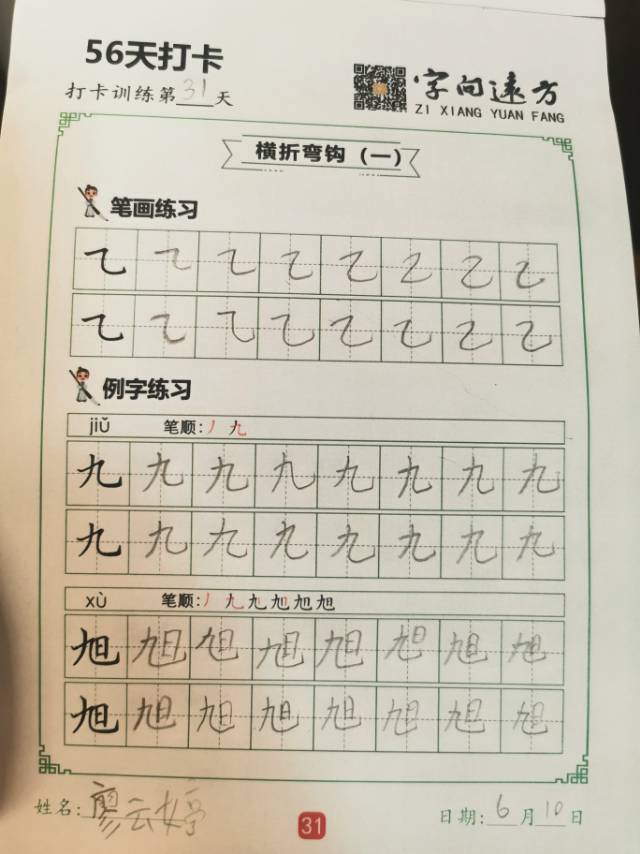 56天打卡
打卡训练第31天
字向远方
ZI XIANG YUAN FANG
横折弯钩（一）
笔画练习
乙 乙 乙 乙 乙 乙 乙 乙
乙 乙 乙 乙 乙 乙 乙 乙
例字练习
jiǔ 笔顺:丿 九
九 九 九 九 九 九 九 九
九 九 九 九 九 九 九 九
xù 笔顺:丿 九 九 旭 旭 旭
旭 旭 旭 旭 旭 旭 旭 旭
旭 旭 旭 旭 旭 旭 旭 旭
姓名:廖云婷
31
日期:6月10日